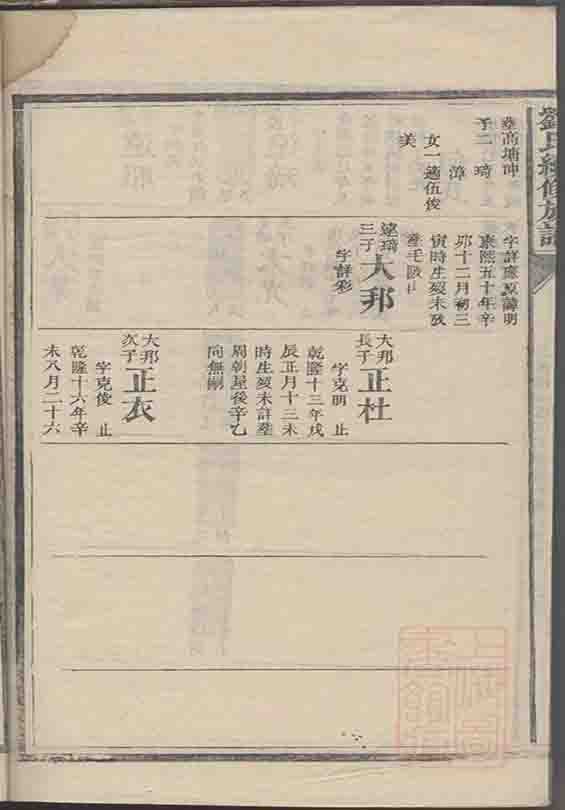 劉氏續修族譜
塟高埇冲
子二 琦
漳
女一適伍俊
美
字詳應原諱明
康熙五十年辛
卯十二月初三
寅時生歿未詳
遠琦
三子
大邦
字詳彩
大邦
長子
正杜
字克明 止
乾隆十三年戊
辰正月十三未
時生歿未詳塟
周朝屋後辛乙
向無嗣
大邦
次子
正衣
字克俊 止
乾隆十六年辛
未八月二十六